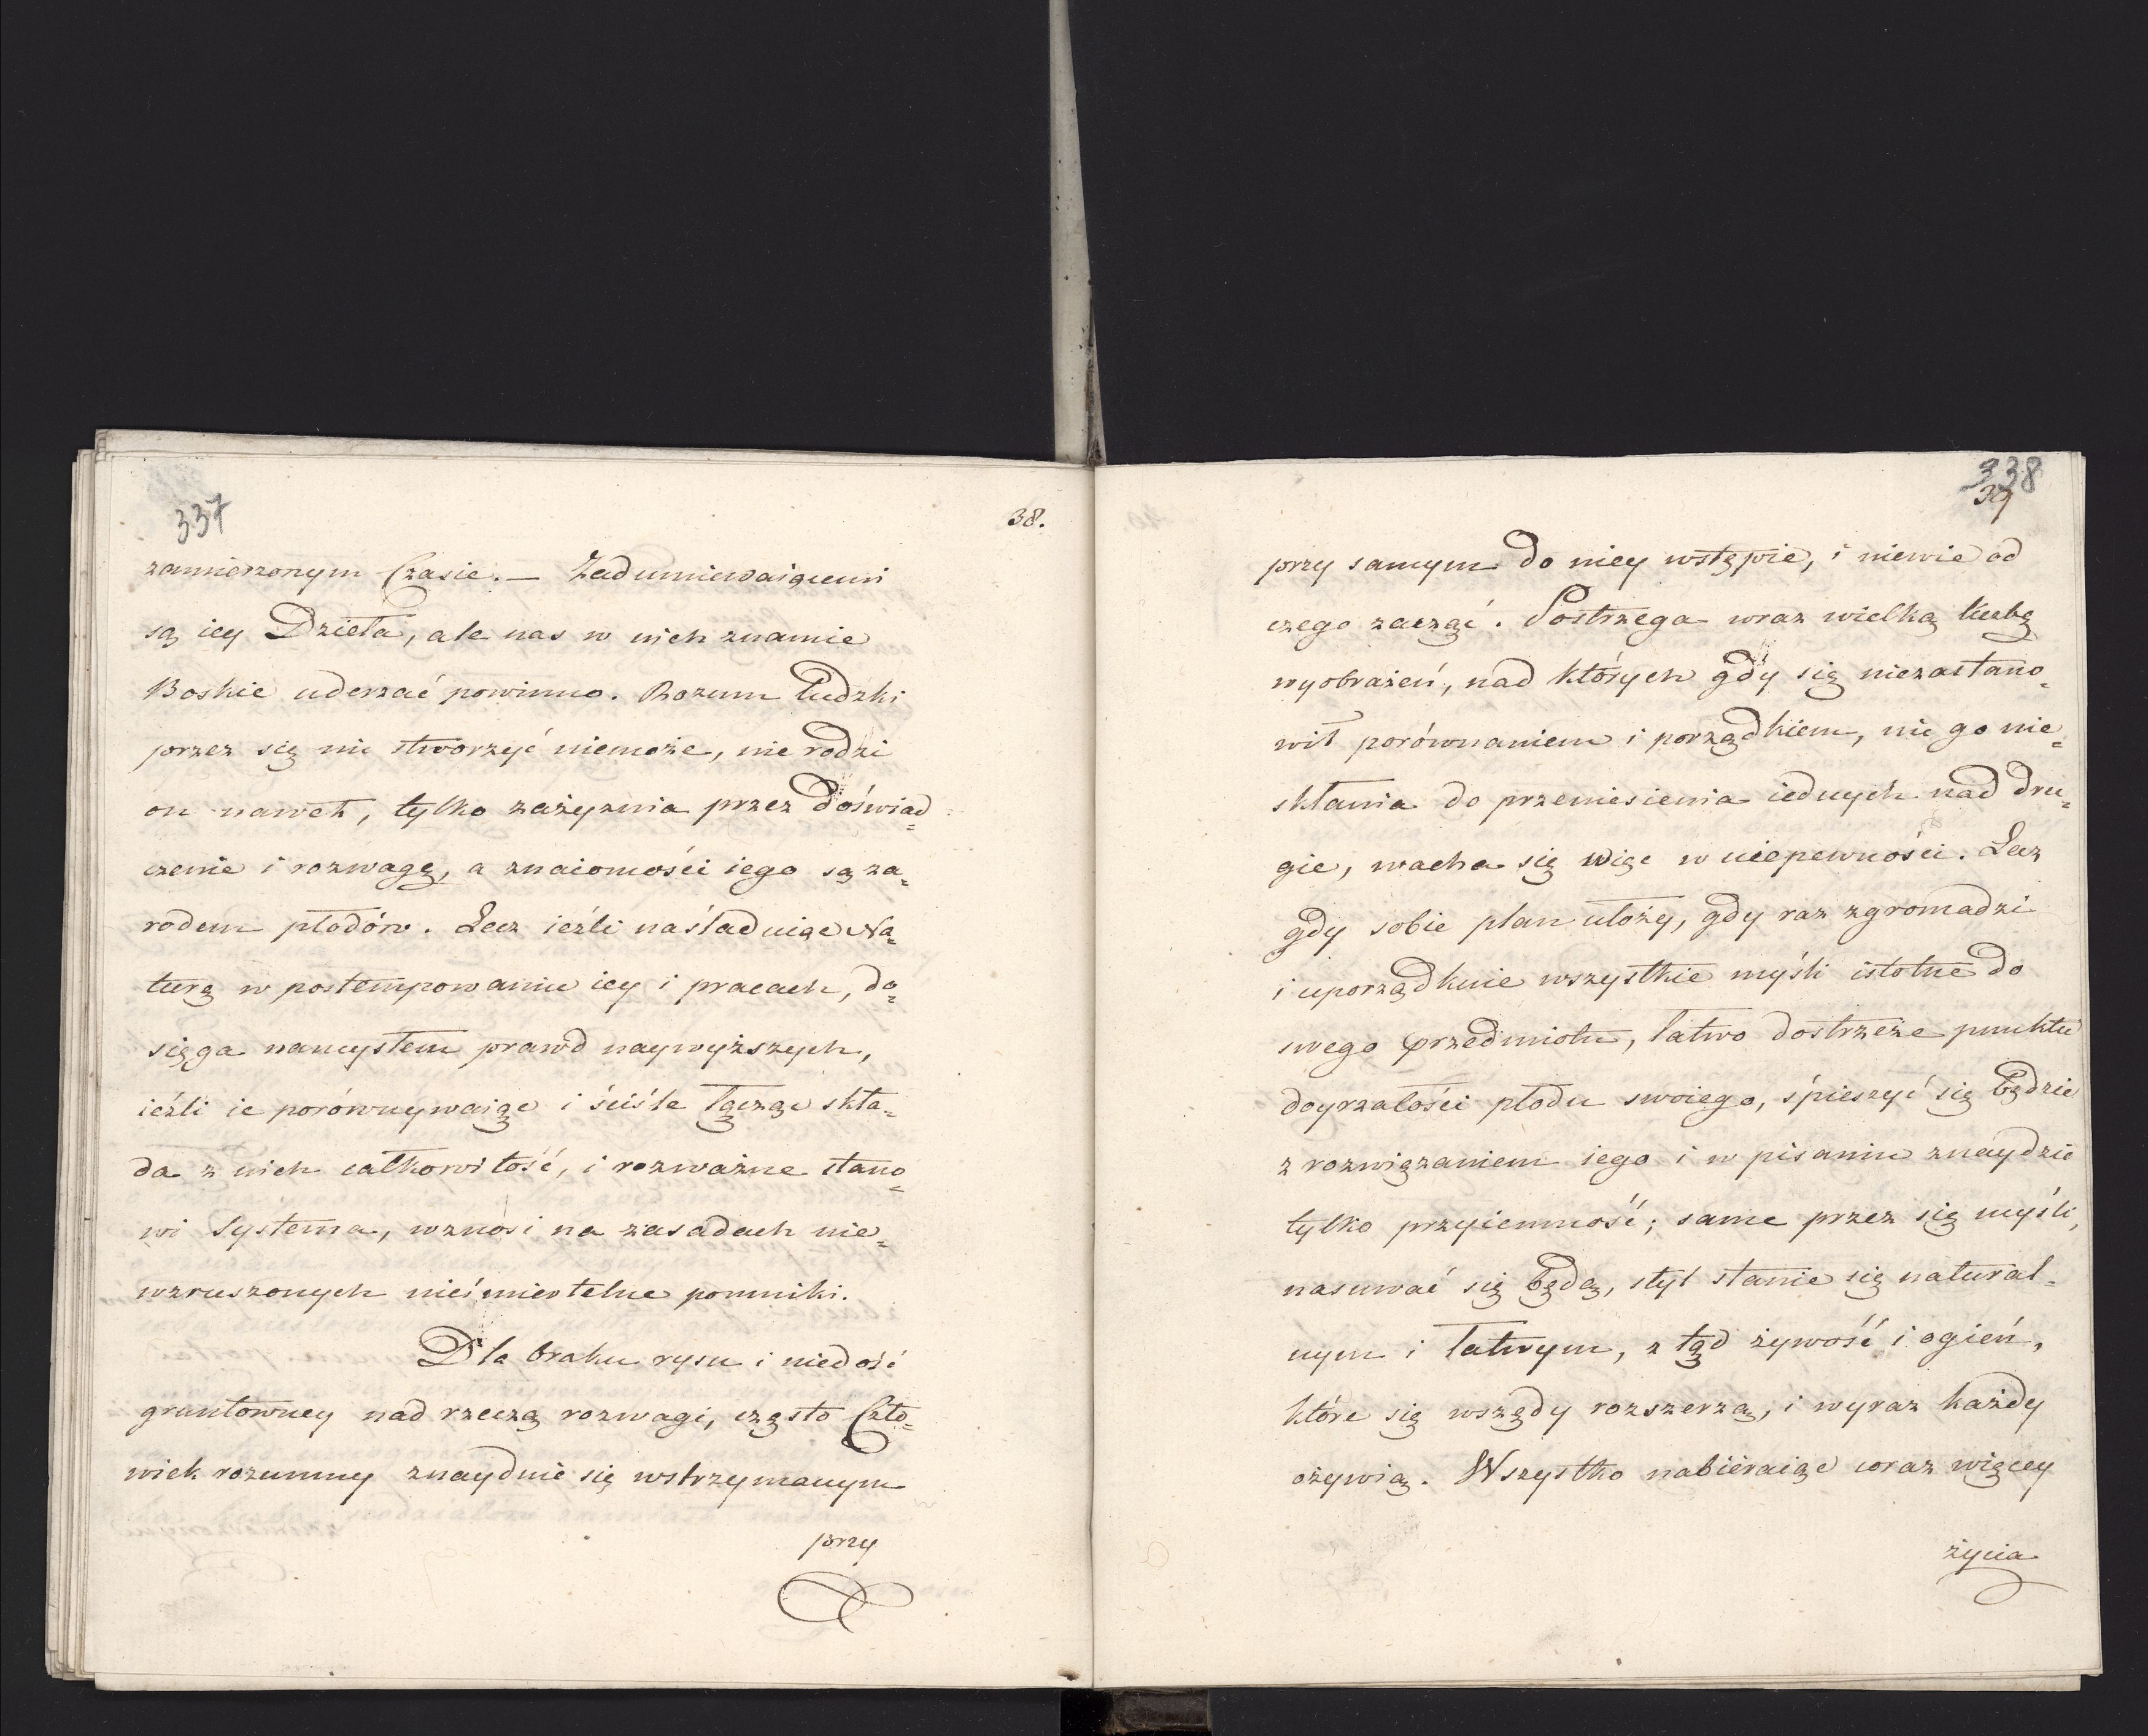 337
38.
zamierzonym Czasie. — Zadumiewaiącemi
są iey Dzieła, ale nas w nich znamie
Boskie uderzać powinno. Rozum ludzki
przez się nic stworzyć niemoże, nie rodzi
on nawet, tylko zażyznia przez doświad=
czenie i rozwagę, a znaiomości iego są za=
rodem płodów. Lecz ieźli naśladuiąc Na=
turę w postempowaniu iey i pracach, do=
sięga namysłem prawd naywyższych,
ieźli ie porównywaiąc i ściśle łącząc skła=
da z nich całkowitość, i rozważne stano=
wi Systema, wznosi na zasadach nie=
wzruszonych nieśmiertelne pomniki.
Dla braku rysu i niedość
gruntowney nad rzeczą rozwagi, często Czło=
wiek rozumny znayduie się wstrzymanym
przy
338
39
przy samym do niey wstępie, i niewie od
czego zacząć. Postrzega wraz wielką liczbę
wyobrażeń, nad których gdy się niezastano=
wił porównaniem i porządkiem, nic go nie=
skłania do przeniesienia iednych nad dru=
gie, wacha się więc w niepewności. Lecz
gdy sobie plan ułoży, gdy raz zgromadzi
i uporządkuie wszystkie myśli istotne do
swego przedmiotu, łatwo dostrzeże punktu
doyrzałości płodu swoiego, śpieszyć się będzie
z rozwiązaniem iego i w pisaniu znaydzie
tylko przyiemność; same przez się myśli,
nasuwać się będą, styl stanie się natural=
nym i łatwym, z tąd żywość i ogień,
które się wszędy rozszerzą, i wyraz każdy
ożywią. Wszystko nabiéraiąc coraz więcey
życia